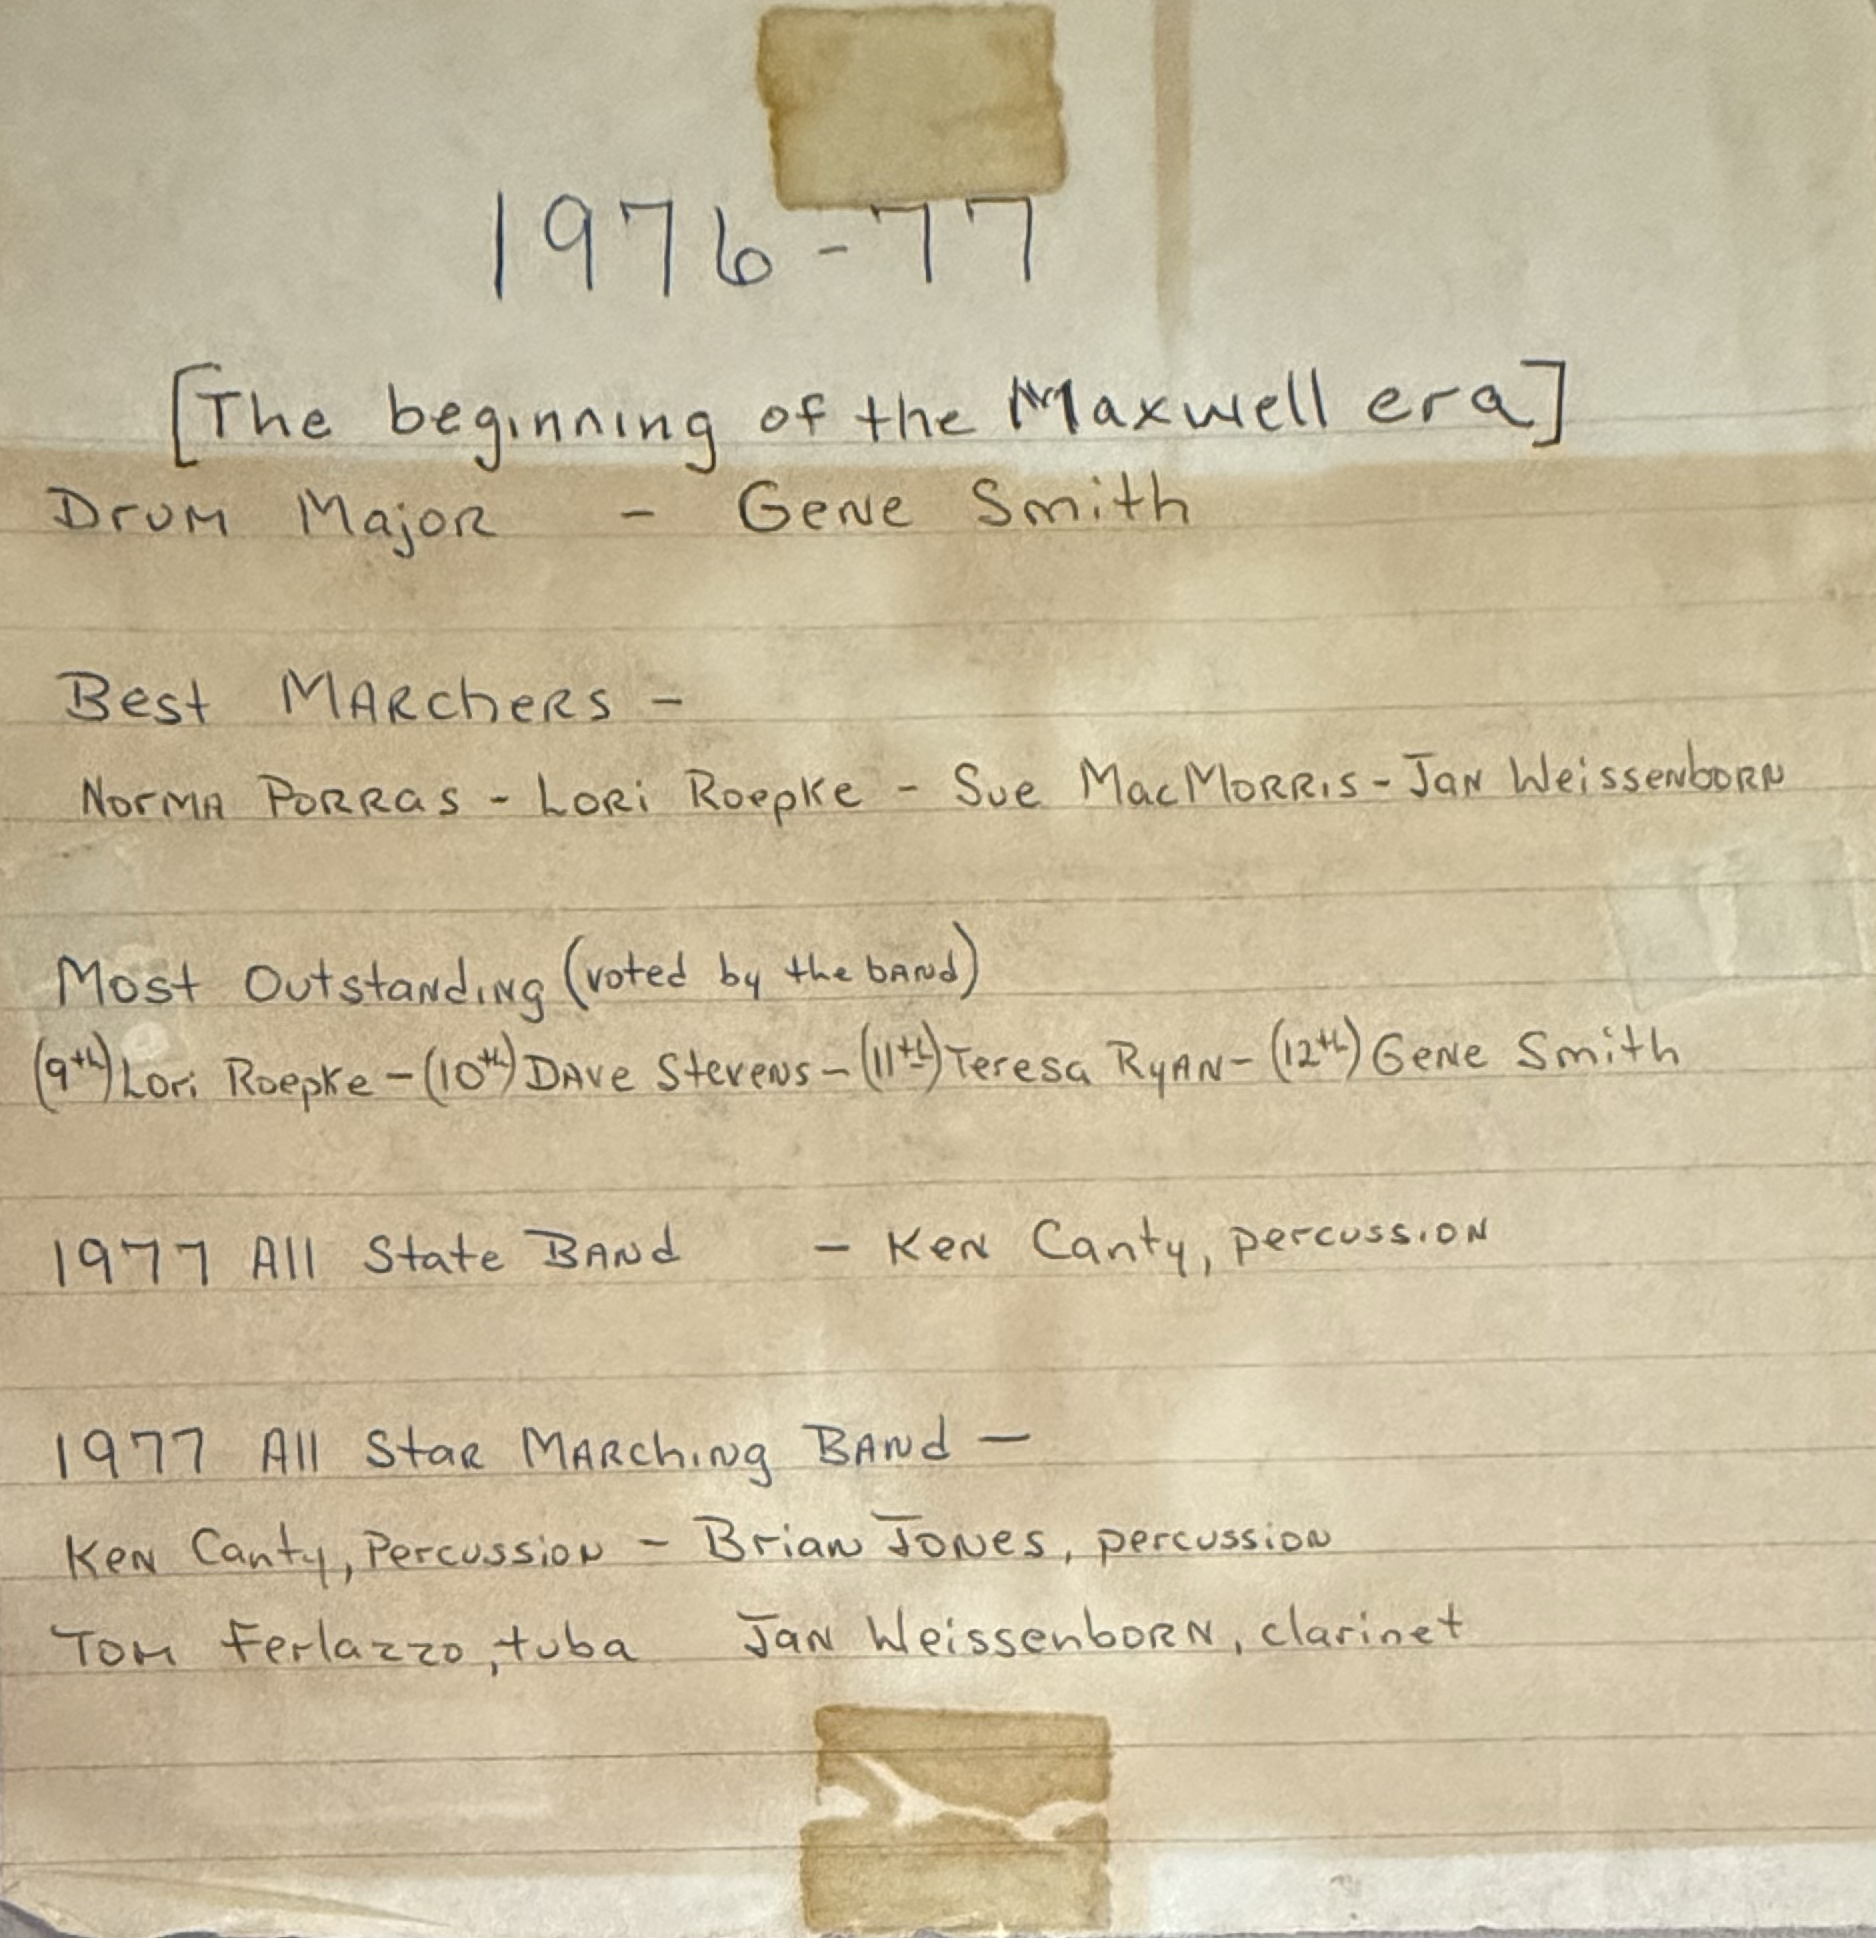 1976-77
[The beginning of the Maxwell era]
Drum Major - Gene Smith
Best Marchers -
Norma Porras - Lori Roepke - Sue MacMorris - Jan Weissenborn
Most Outstanding (voted by the band)
(9th) Lori Roepke - (10th) Dave Stevens - (11th) Teresa Ryan - (12th) Gene Smith
1977 All State Band - Ken Canty, percussion
1977 All Star Marching Band -
Ken Canty, Percussion - Brian Jones, percussion
Tom Ferlazzo, tuba Jan Weissenborn, clarinet